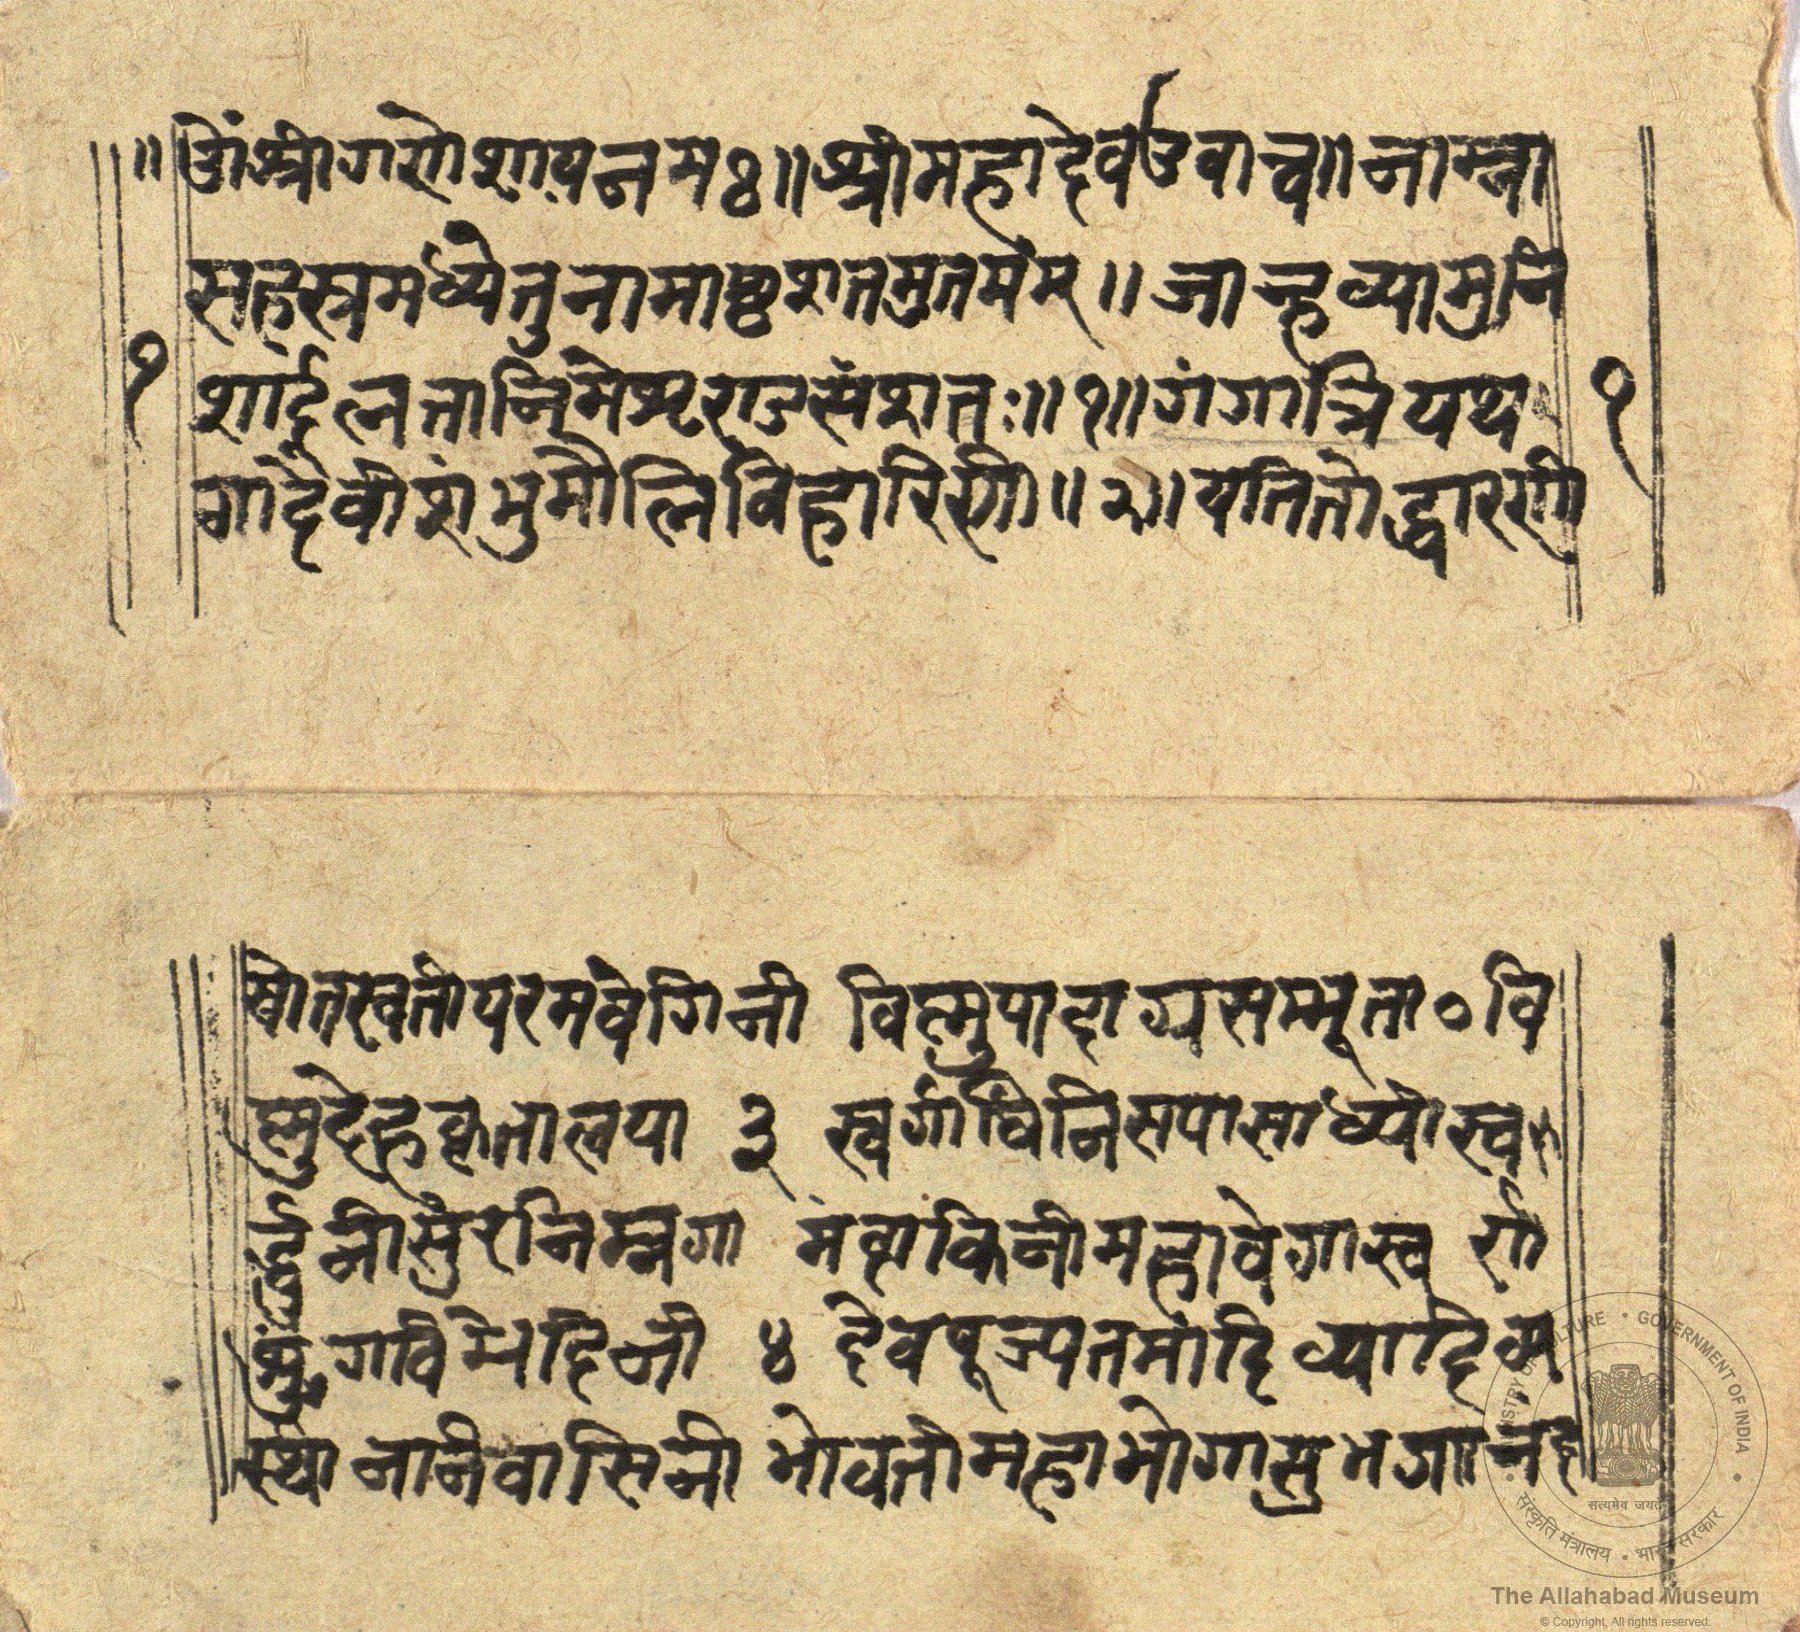 ॥ ओं श्रीगणेशायनमः ॥ श्रीमहादेवउवाच ॥ नाम्ना
सहस्रमध्येतुनामाष्टशतमुतमंम् ॥ जान्हव्यामुनि
१ शार्दूलतानिमेशृणु ॥ १ ॥ गंगात्रिपथ १
गादेवीशंभुमौलिविहारिणी ॥ २ ॥ पतितोद्धारणी
स्रोतस्वतीपरमवेगिनी विष्णुपादाग्रसम्भूता० वि
ष्णुदेहकृतालया ३ स्वर्गाब्धिनि साध्वी स्व
र्द्धुनीसुरनिम्नगा मंदाकिनीमहावेगास्व र्णा
शृंगविभेदिनी ४ देवपूज्यतमादिव्यादिव्य
स्थानानिवासिनी भोवतीमहाभोगासुभगानंद
MINISTRY OF CULTURE • GOVERNMENT OF INDIA
सत्यमेव जयते
संस्कृति मंत्रालय • भारत सरकार
The Allahabad Museum
© Copyright, All rights reserved.